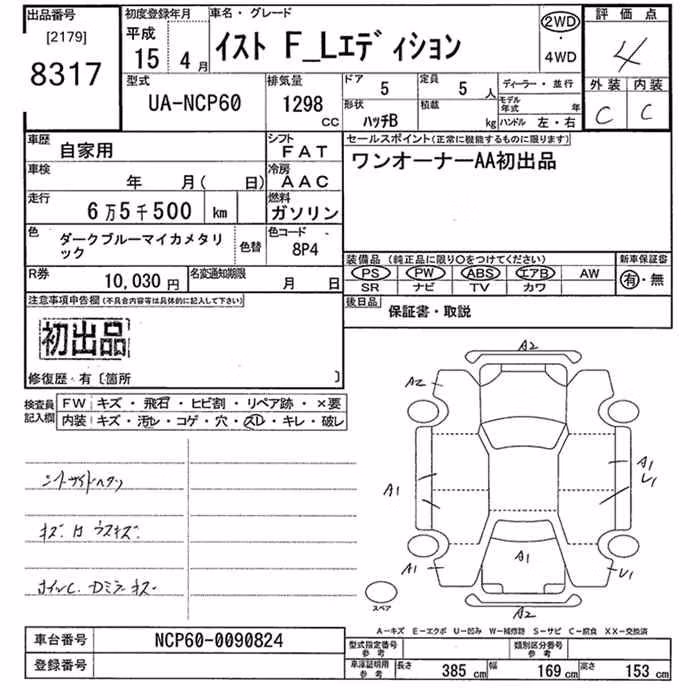 出品番号
[2179]
8317
初度登録年月
平成
15 4月
車名・グレード
イスト F_Lエディション
2WD
・
4WD
評価点
4
外装 内装
C C
型式
UA-NCP60
排気量
1298
CC
ドア
5
定員
5人
形状
ハッチB
積載
kg
ディーラー・並行
モデル年式 年
ハンドル 左・右
車歴
自家用
シフト
FAT
車検
年 月( 日)
冷房
AAC
走行
6万5千500 km
燃料
ガソリン
色
ダークブルーマイカメタリ
ック
色替
色コード
8P4
R券
10,030円
名変通知期限
月 日
セールスポイント(正常に機能するものに限ります)
ワンオーナーAA初出品
装備品(純正品に限り○をつけてください)
PS PW ABS エアB AW
SR ナビ TV カワ
新車保証書
有・無
後日品
保証書・取説
注意事項申告欄(不具合内容等は具体的に記入して下さい)
初出品
修復歴・有〔箇所 〕
検査員
記入欄
FW キズ・飛石・ヒビ割・リペア跡・×要
内装 キズ・汚レ・コゲ・穴・スレ・キレ・破レ
A2
A2
A1
A1
U1
A1
A1
U1
A2
スペア
A-キズ E-エクボ U-凹み W-補修跡 S-サビ C-腐食 XX-交換済
車台番号 NCP60-0090824
登録番号
型式指定番号
参考
類別区分番号
参考
車庫証明用
参考
長さ 385cm 幅 169cm 高さ 153cm